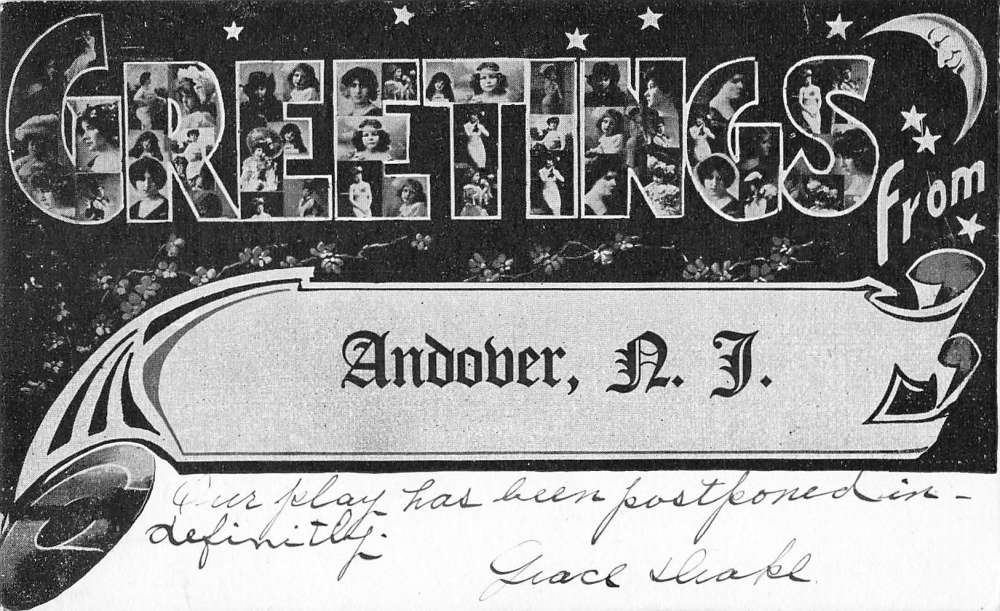 GREETINGS
from
Andover, N. J.
Our play has been postponed in-
definitly.
Grace Drake